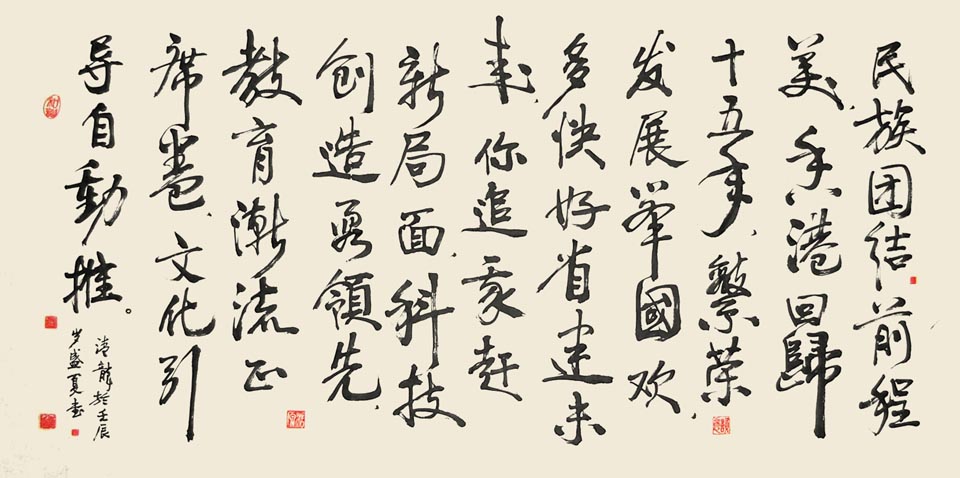 民族团结前程
美,香港回歸
十五年,繁荣
发展举國欢,
多快好省建未
来,你追我赶
新局面,科技
创造勇領先,
教育潮流正
席卷,文化引
导自動推。
清龍於壬辰
岁盛夏书